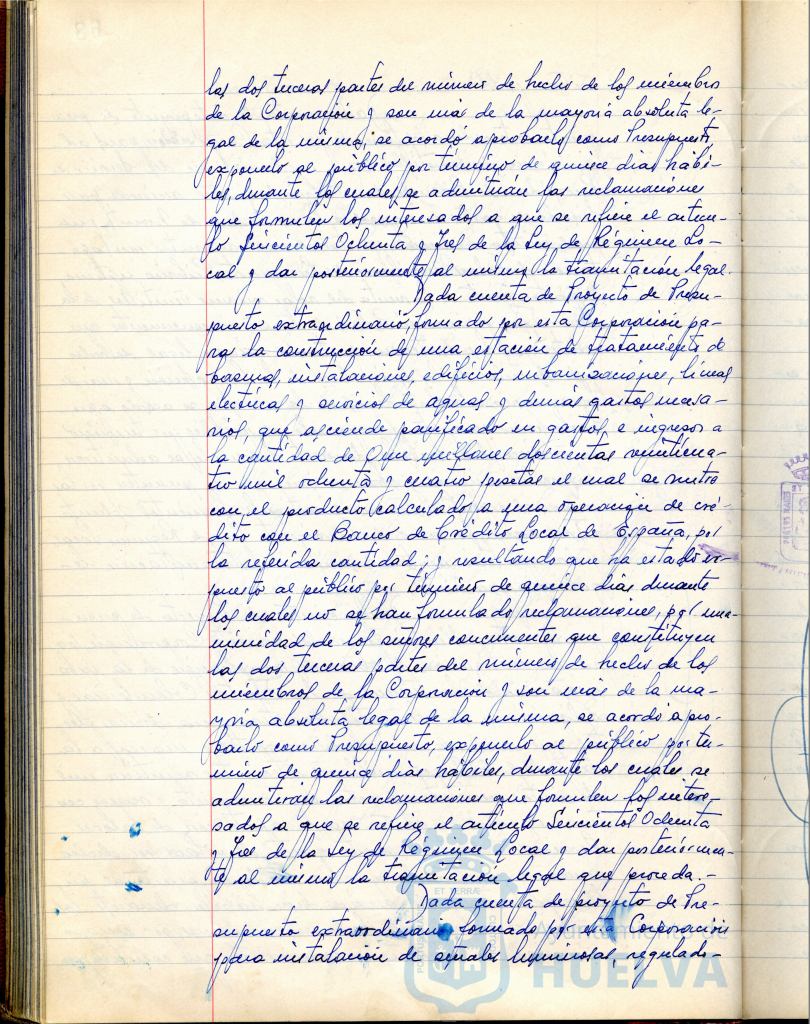 las dos terceras partes del número de hecho de los miembros
de la Corporación y son más de la mayoría absoluta le-
gal de la misma, se acordó aprobarlo como Presupuesto,
exponerlo al público por término de quince días hábi-
les, durante los cuales se admitirán las reclamaciones
que formulen los interesados a que se refiere el artícu-
lo Seiscientos Ochenta y Tres de la Ley de Régimen Lo-
cal y dar posteriormente al mismo la tramitación legal.
Dada cuenta de Proyecto de Presu-
puesto extraordinario, formado por esta Corporación pa-
ra la construcción de una estación de tratamiento de
basuras, instalaciones, edificios, urbanizaciones, líneas
electricas y servicios de aguas y demás gastos necesa-
rios, que asciende panificado en gastos e ingresos a
la cantidad de millones doscientas veinticua-
tro mil ochenta y cuatro pesetas el cual se nutre
con el producto calculado a una operación de cré-
dito con el Banco de Crédito Local de España, por
la referida cantidad; y resultando que ha estado ex-
puesto al público por término de quince días durante
los cuales no se han formulado reclamaciones, por una-
nimidad de los señores concurrentes que constituyen
las dos terceras partes del número de hecho de los
miembros de la Corporación y son más de la ma-
yoría absoluta legal de la misma, se acordó apro-
barlo como Presupuesto, exponerlo al público por tér-
mino de quince días hábiles, durante los cuales se
admitirán las reclamaciones que formulen los intere-
sados a que se refiere el artículo Seiscientos Ochenta
y Tres de la Ley de Régimen Local y dar posteriormen-
te al mismo la tramitación legal que proceda.-
Dada cuenta de proyecto de Pre-
supuesto extraordinario formado por esta Corporación
para instalación de señales luminosas, regulado-
Ayuntamiento
HUELVA